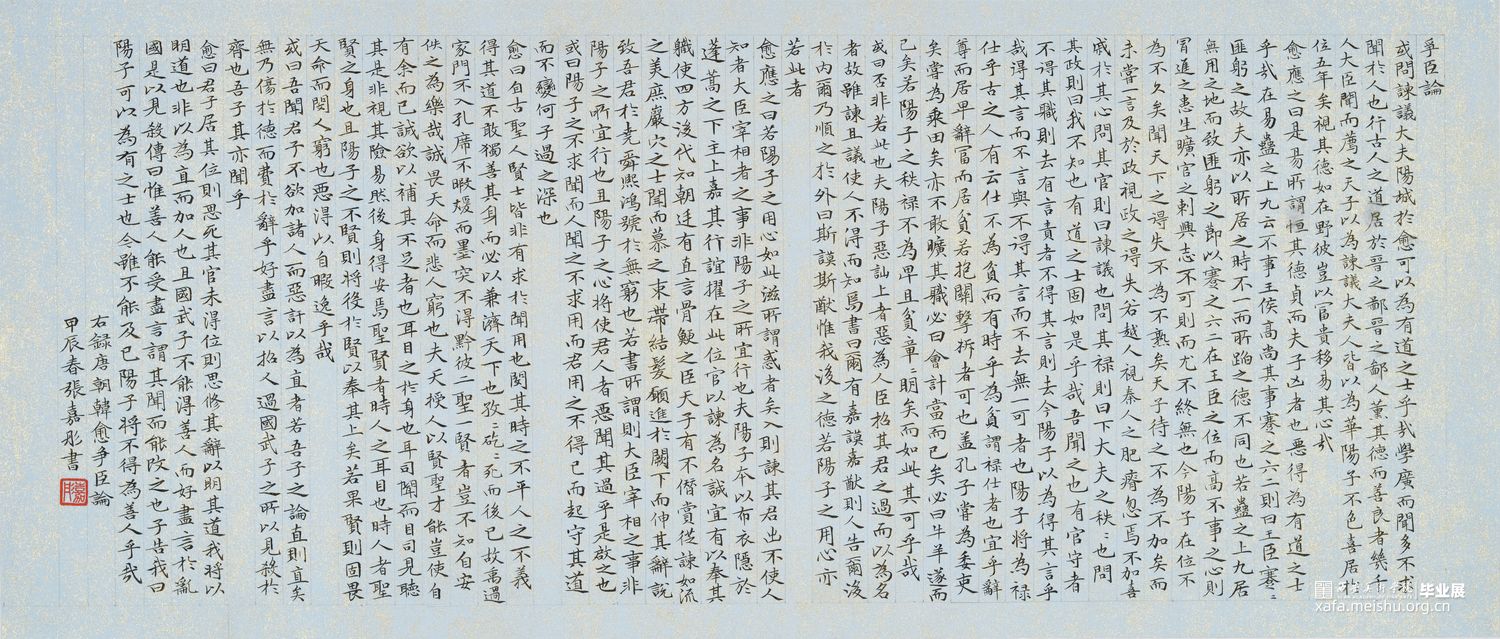 爭臣論
或問諫議大夫陽城於愈可以為有道之士乎哉學廣而聞多不求
聞於人也行古人之道居於晉之鄙晉之鄙人薰其德而善良者幾千
人大臣聞而薦之天子以為諫議大夫人皆以為華陽子不色喜居於
位五年矣視其德如在野彼豈以富貴移易其心哉
愈應之曰是易所謂恒其德貞而夫子凶者也惡得為有道之士
乎哉在易蠱之上九云不事王侯高尚其事蹇之六二則曰王臣蹇〻
匪躬之故夫亦以所居之時不一而所蹈之德不同也若蠱之上九居
無用之地而致匪躬之節以蹇之六二在王臣之位而高不事之心則
冒進之患生曠官之刺興志不可則而尤不終無也今陽子在位不
為不久矣聞天下之得失不為不熟矣天子待之不為不加矣而
未嘗一言及於政視政之得失若越人視秦人之肥瘠忽焉不加喜
戚於其心問其官則曰諫議也問其祿則曰下大夫之秩〻也問
其政則曰我不知也有道之士固如是乎哉吾聞之也有官守者
不得其職則去有言責者不得其言則去今陽子以為得其言乎
哉得其言而不言與不得其言而不去無一可者也陽子將為祿
仕乎古之人有云仕不為貧而有時乎為貧謂祿仕者也宜乎辭
尊而居卑辭富而居貧若抱關擊柝者可也蓋孔子嘗為委吏
矣嘗為乘田矣亦不敢曠其職必曰會計當而已矣必曰牛羊遂而
已矣若陽子之秩祿不為卑且貧章〻明矣而如此其可乎哉
或曰否非若此也夫陽子惡訕上者惡為人臣招其君之過而以為名
者故雖諫且議使人不得而知焉書曰爾有嘉謨嘉猷則入告爾後
於內爾乃順之於外曰斯謨斯猷惟我後之德若陽子之用心亦
若此者
愈應之曰若陽子之用心如此滋所謂惑者矣入則諫其君出不使人
知者大臣宰相者之事非陽子之所宜行也夫陽子本以布衣隱於
蓬蒿之下主上嘉其行誼擢在此位官以諫為名誠宜有以奉其
職使四方後代知朝廷有直言骨鯁之臣天子有不僭賞從諫如流
之美庶巖穴之士聞而慕之束帶結髮願進於闕下而伸其辭說
致吾君於堯舜熙鴻號於無窮也若書所謂則大臣宰相之事非
陽子之所宜行也且陽子之心將使君人者惡聞其過乎是啟之也
或曰陽子之不求聞而人聞之不求用而君用之不得已而起守其道
而不變何子過之深也
愈曰自古聖人賢士皆非有求於聞用也閔其時之不平人之不義
得其道不敢獨善其身而必以兼濟天下也孜〻矻〻死而後已故禹過
家門不入孔席不暇煖而墨突不得黔彼二聖一賢者豈不知自安
佚之為樂哉誠畏天命而悲人窮也夫天授人以賢聖才能豈使自
有余而已誠欲以補其不足者也耳目之於身也耳司聞而目司見聽
其是非視其險易然後身得安焉聖賢者時人之耳目也時人者聖
賢之身也且陽子之不賢則將役於賢以奉其上矣若果賢則固畏
天命而閔人窮也惡得以自暇逸乎哉
或曰吾聞君子不欲加諸人而惡訐以為直者若吾子之論直則直矣
無乃傷於德而費於辭乎好盡言以招人過國武子之所以見殺於
齊也吾子其亦聞乎
愈曰君子居其位則思死其官未得位則思修其辭以明其道我將以
明道也非以為直而加人也且國武子不能得善人而好盡言於亂
國是以見殺傳曰惟善人能受盡言謂其聞而能改之也子告我曰
陽子可以為有之士也今雖不能及已陽子將不得為善人乎哉
右錄唐朝韓愈爭臣論
甲辰春張嘉彤書
毕业展
xafa.meishu.org.cn